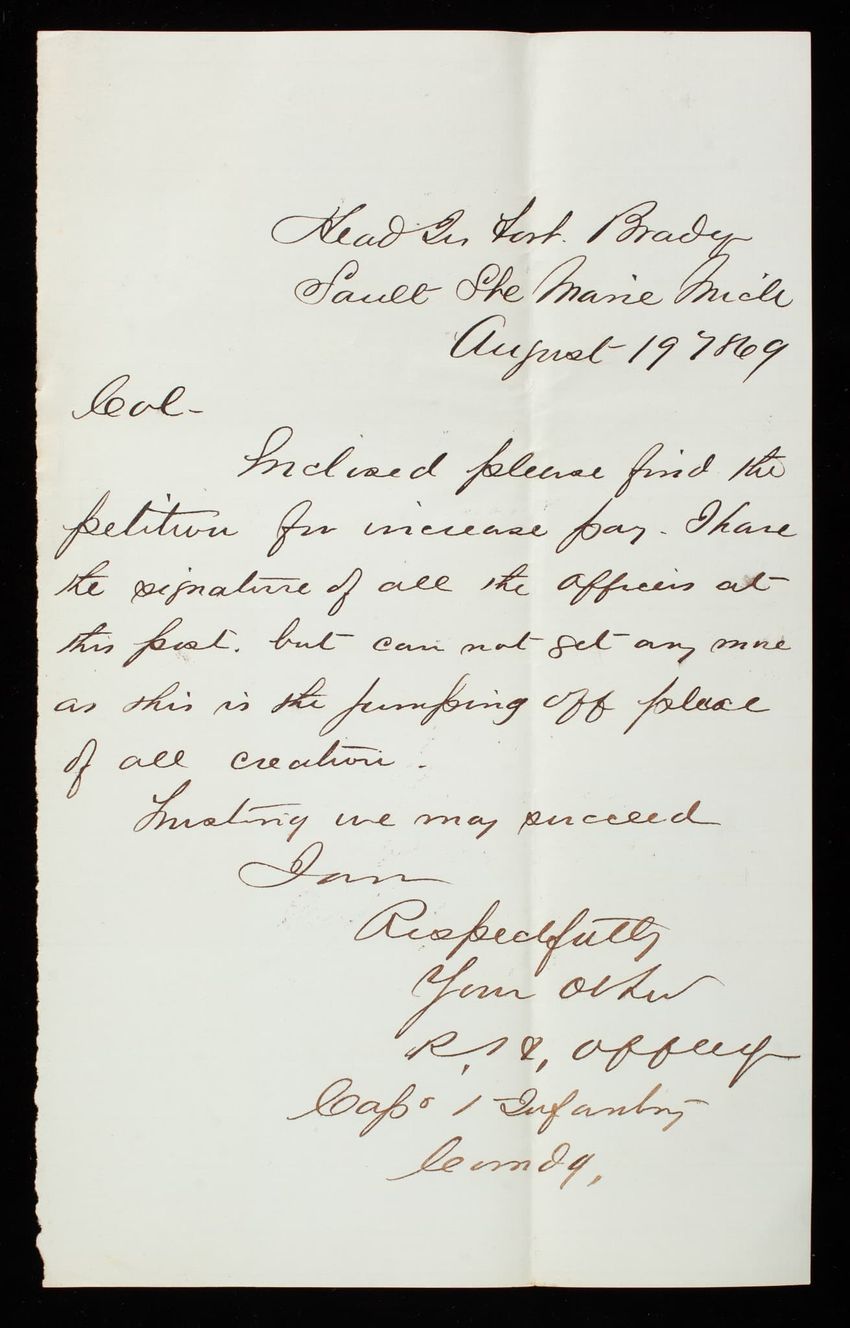 Head Qrs Fort. Brady
Sault Ste Marie Mich
August 19 1869
Col-
Inclosed please find the
petition for increase pay. I have
the signature of all the officers at
this post. but can not get any more
as this is the jumping off place
of all creation.
Trusting we may succeed
I am
Respectfully
Your Obt
R, I
Capt 1 Infantry
Comdg,